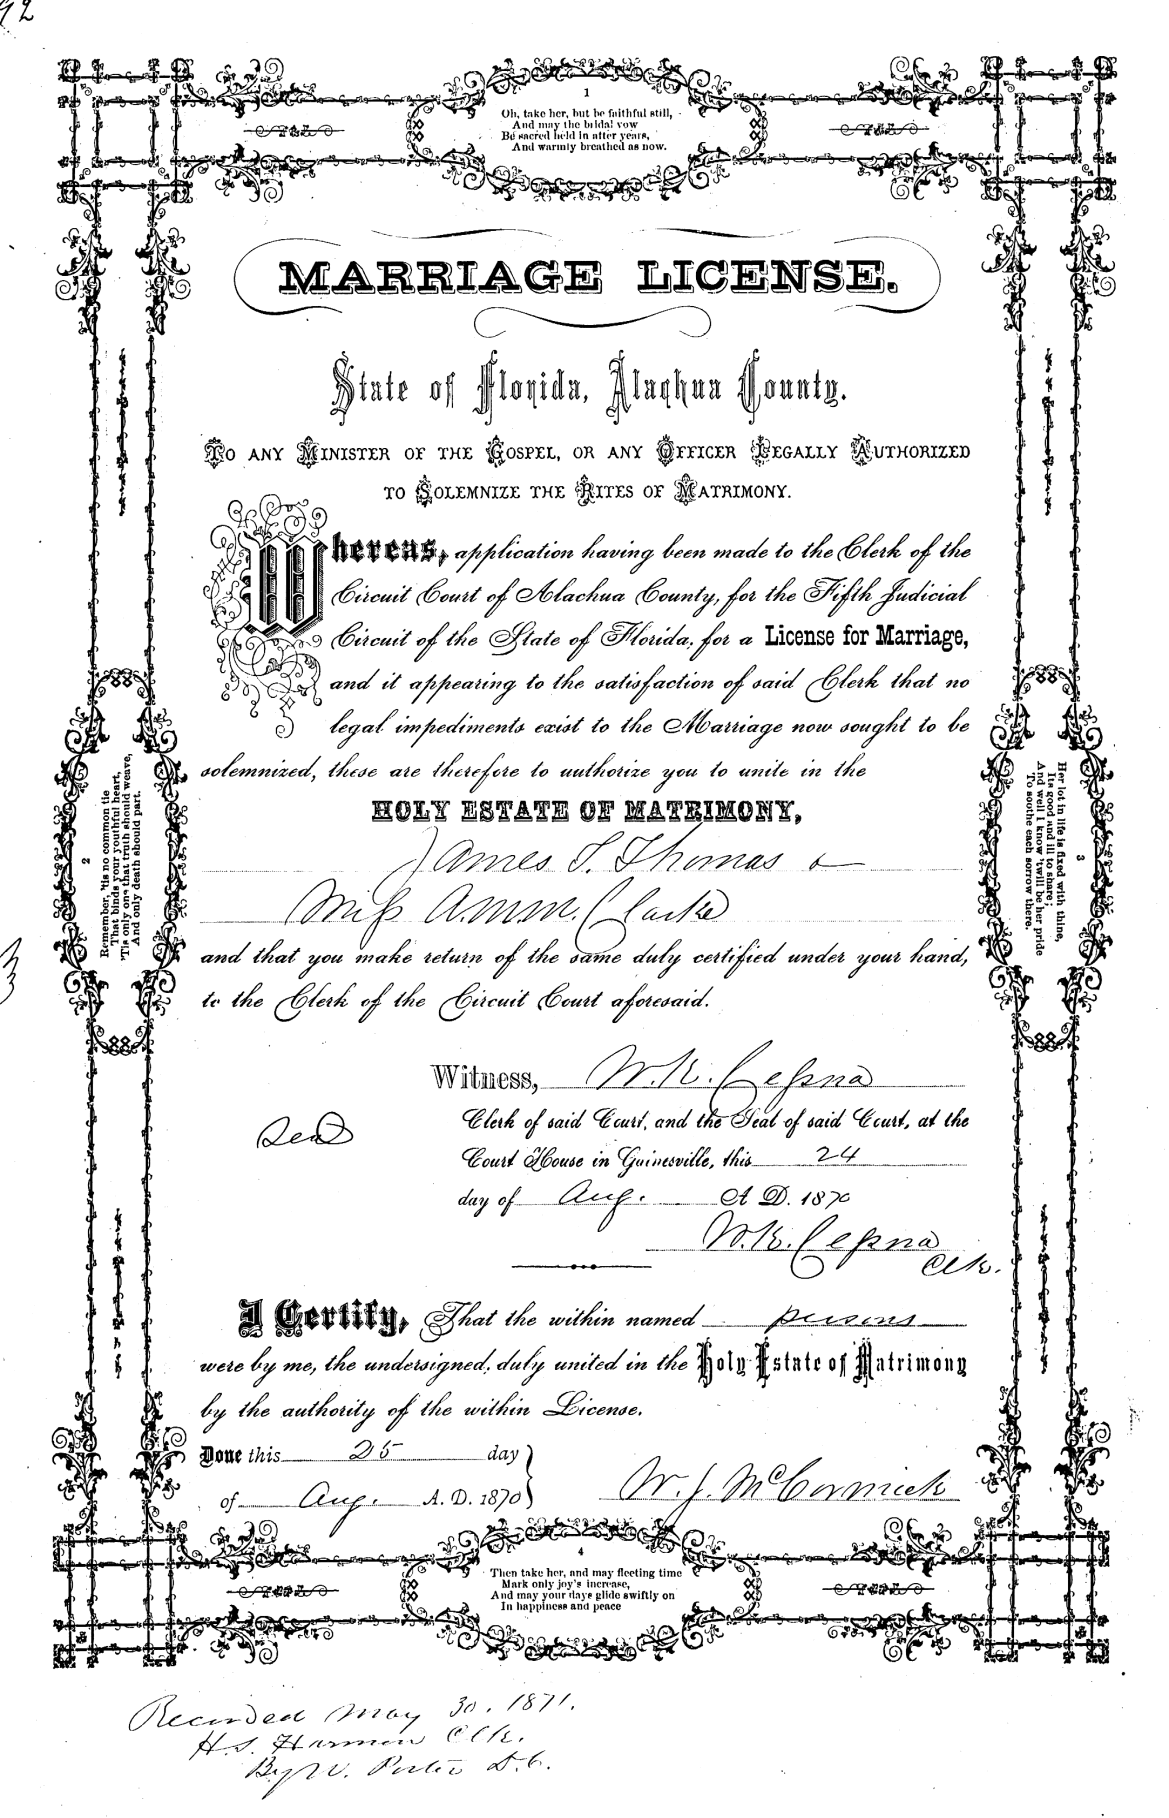 92
1
Oh, take her, but be faithful still,
And may the bridal vow
Be sacred held in after years,
And warmly breathed as now.
MARRIAGE LICENSE.
State of Florida, Alachua County.
TO ANY MINISTER OF THE GOSPEL, OR ANY OFFICER LEGALLY AUTHORIZED
TO SOLEMNIZE THE RITES OF MATRIMONY.
Whereas, application having been made to the Clerk of the
Circuit Court of Alachua County, for the Fifth Judicial
Circuit of the State of Florida, for a License for Marriage,
and it appearing to the satisfaction of said Clerk that no
legal impediments exist to the Marriage now sought to be
solemnized, these are therefore to authorize you to unite in the
HOLY ESTATE OF MATRIMONY,
James S. Thomas &
Miss A.M.M. Clarke
and that you make return of the same duly certified under your hand,
to the Clerk of the Circuit Court aforesaid.
2
Remember, 'tis no common tie
That binds your youthful heart,
'Tis only one that truth should weave,
And only death should part.
3
Her lot in life is fixed with thine,
Its good and ill to share;
And well I know 'twill be her pride
To soothe each sorrow there.
Witness, W.K. Cessna
Clerk of said Court, and the Seal of said Court, at the
Seal
Court House in Gainesville, this 24
day of Aug. A. D. 1870
W.K. Cessna
Clk.
I Certify, That the within named persons
were by me, the undersigned, duly united in the Holy Estate of Matrimony
by the authority of the within License.
Done this 25 day
of Aug. A. D. 1870
W. J. McCormick
4
Then take her, and may fleeting time
Mark only joy's increase,
And may your days glide swiftly on
In happiness and peace
Recorded May 30. 1871.
H.S. Harmon Clk.
By W. Porter D.C.